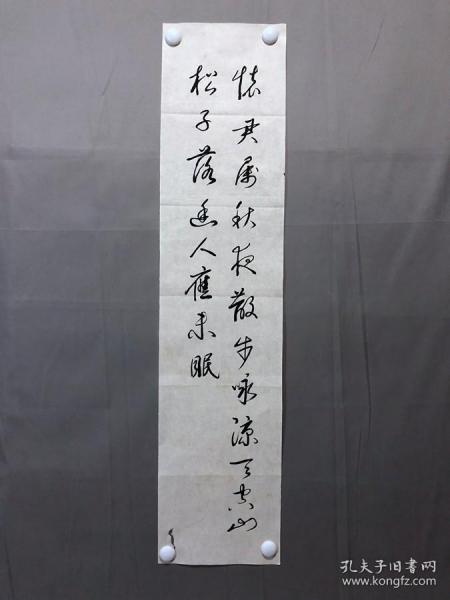 懷君屬秋夜散步咏涼天空山
松子落幽人應未眠
孔夫子旧书网
www.kongfz.com